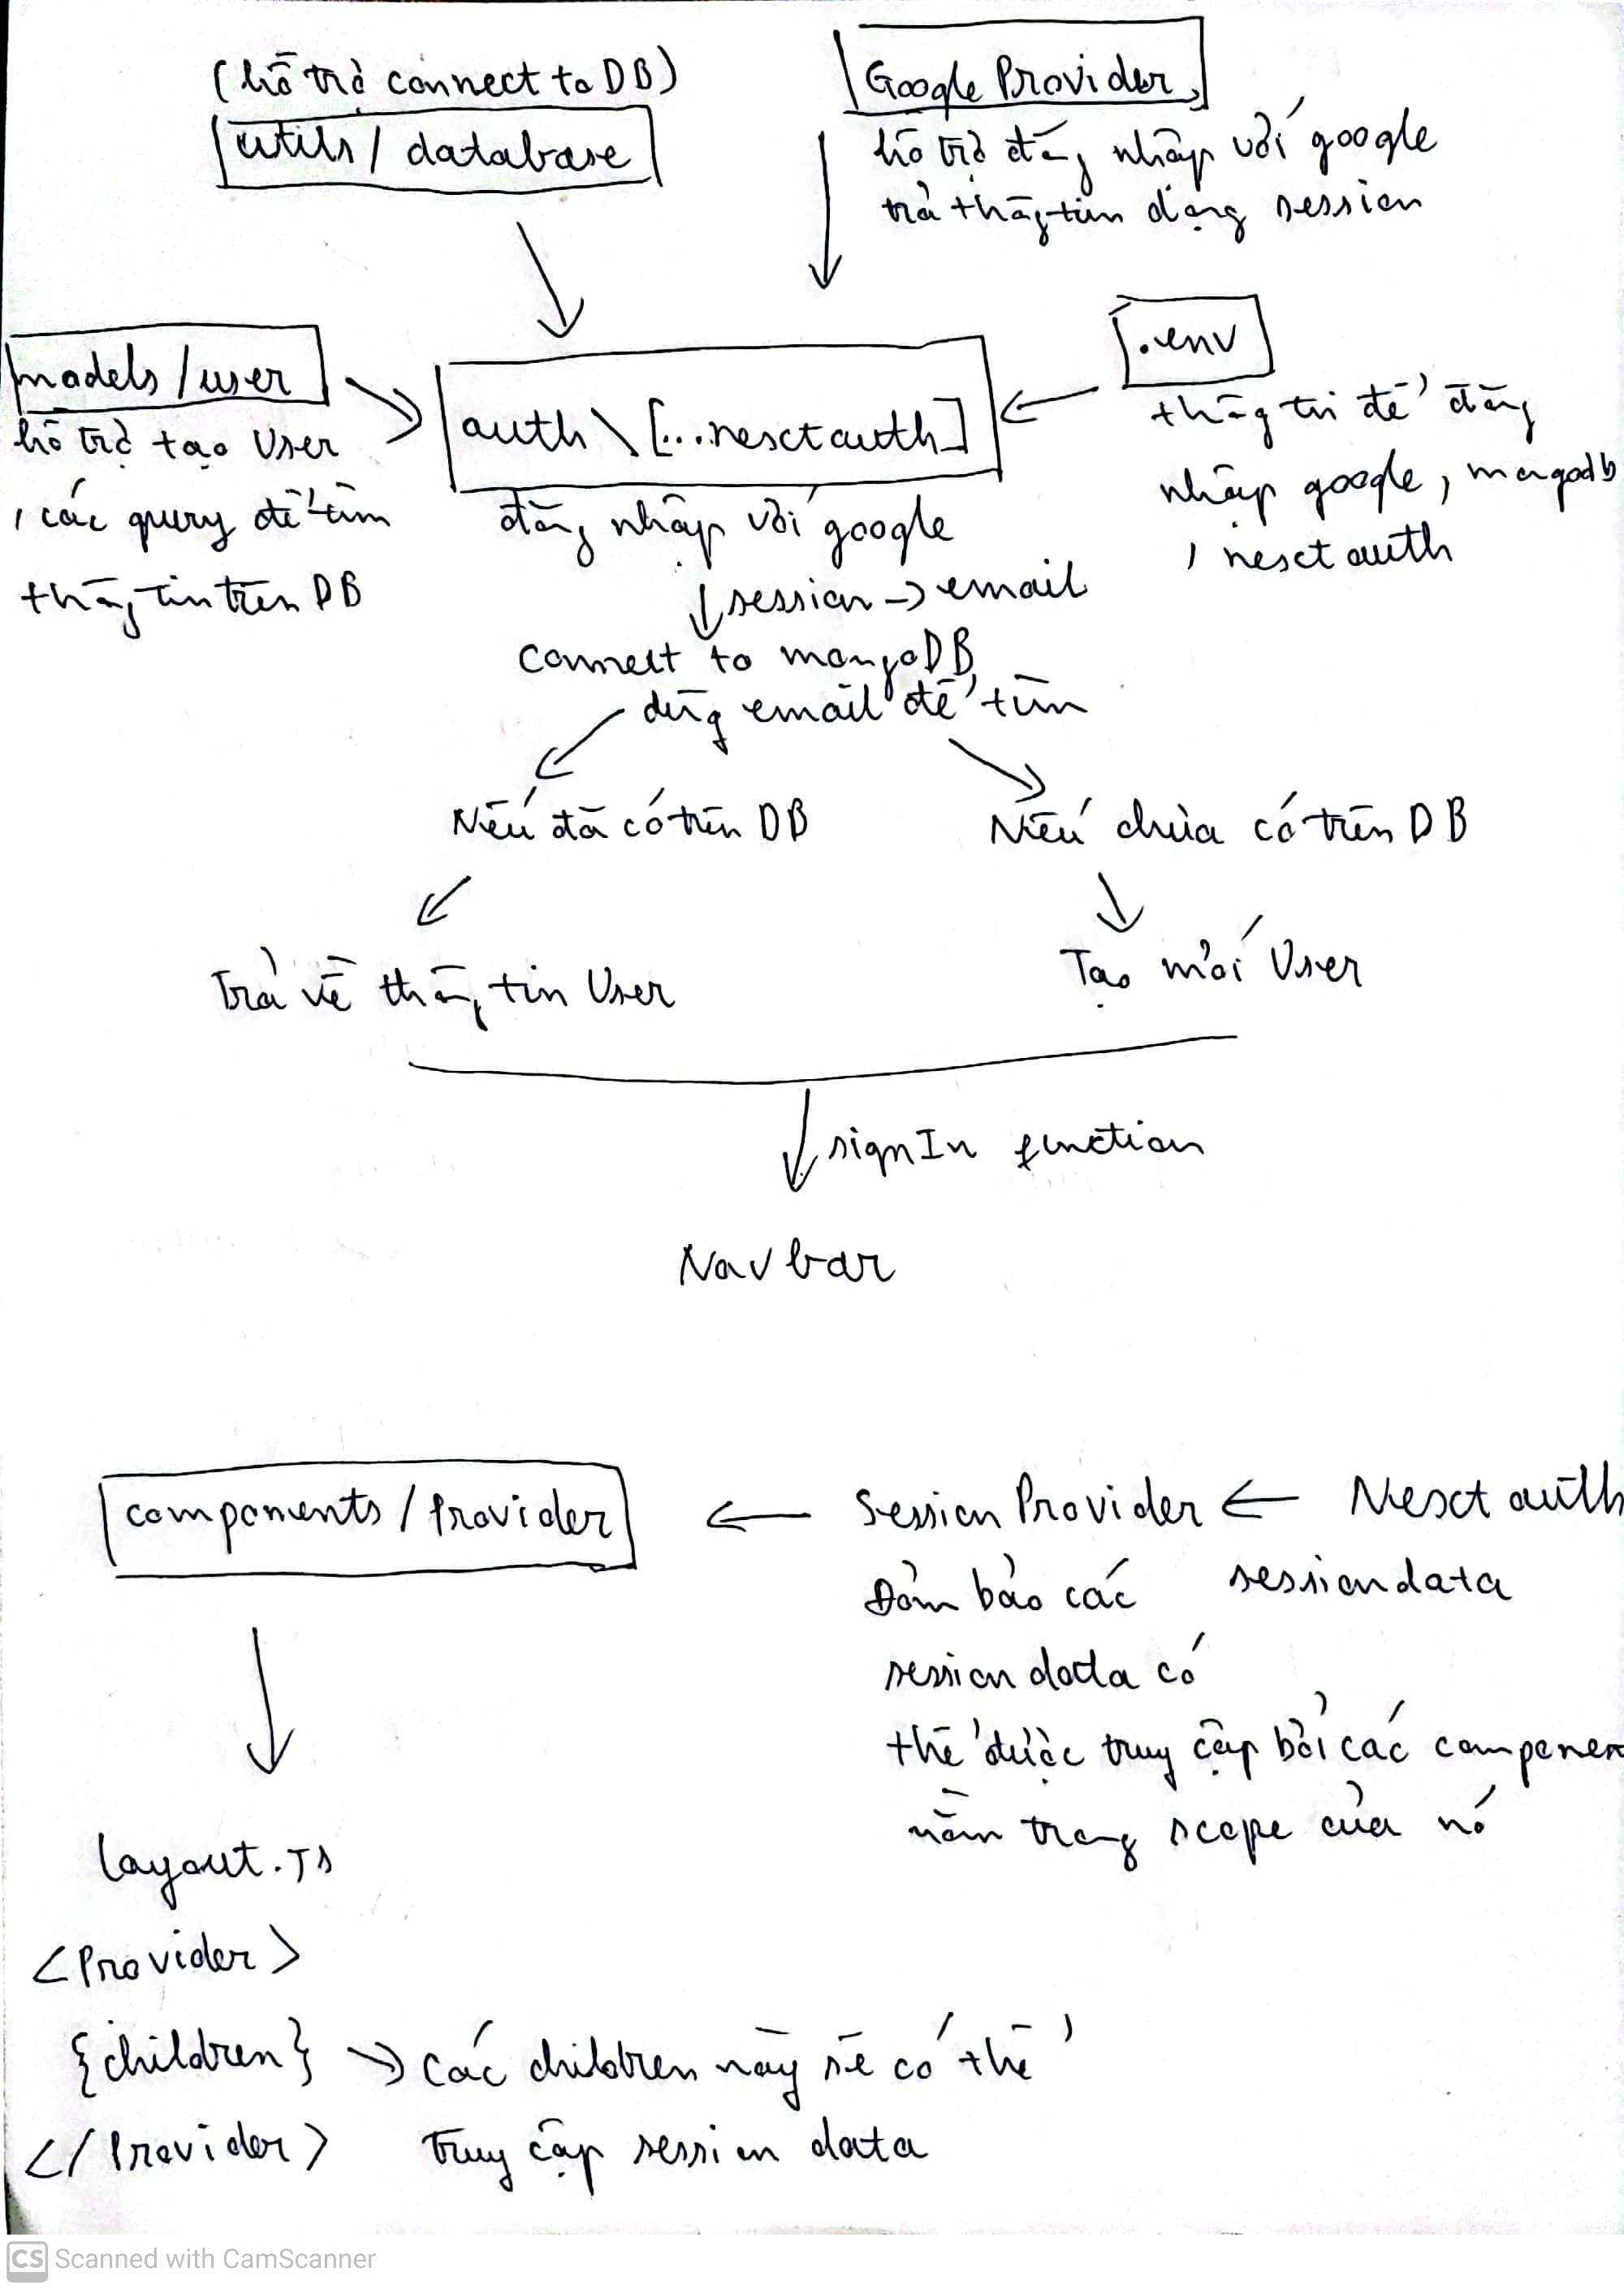 (hỗ trợ connect to DB)
utils / database
Google Provider
hỗ trợ đăng nhập với google
trả thông tin dạng session
models / user
hỗ trợ tạo User
, các query để tìm
thông tin trên DB
auth \ [...nextauth]
.env
thông tin để đăng
nhập google, mongodb
, next auth
đăng nhập với google
session -> email
connect to mongoDB
dùng email để tìm
Nếu đã có trên DB
Nếu chưa có trên DB
Trả về thông tin User
Tạo mới User
signIn function
Navbar
components / Provider
Session Provider
Next auth
session data
Đảm bảo các
session data có
thể được truy cập bởi các componen
nằm trong scope của nó
layout.Ts
<Provider>
{children} -> các children này sẽ có thể
</Provider> truy cập session data
CS Scanned with CamScanner